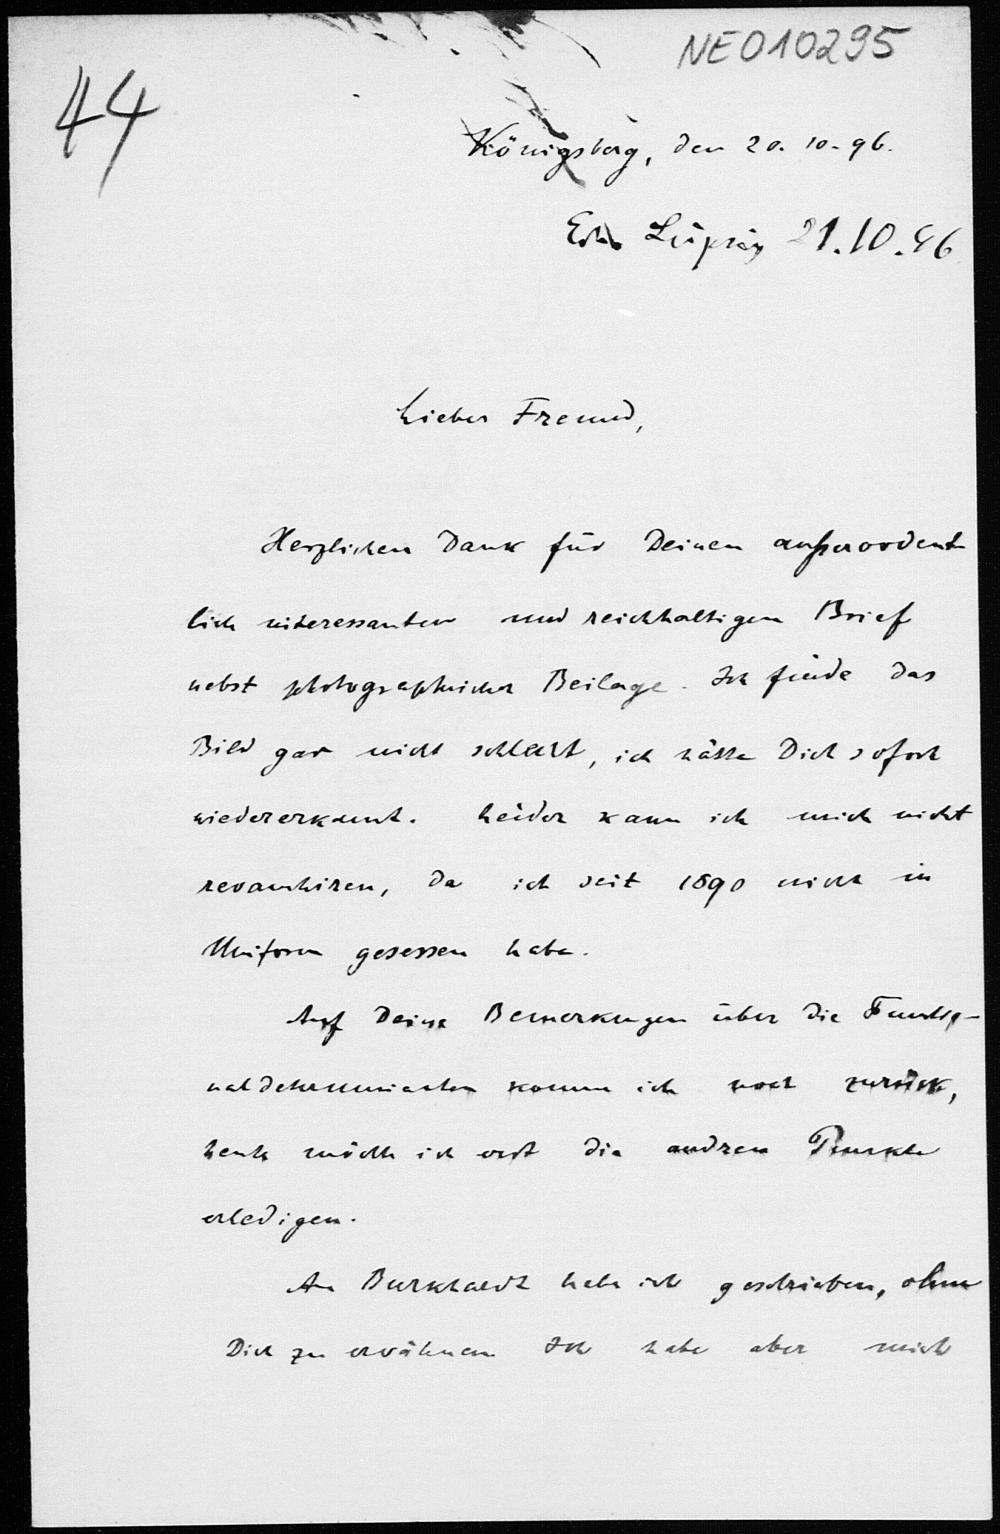 NEO10295
44
Königsberg, den 20. 10. 96.
Erh. Leipzig 21.10.96
Lieber Freund,
Herzlichen Dank für Deinen außerordent
lich interessanten und reichhaltigen Brief
nebst photographischer Beilage. Ich finde das
Bild gar nicht schlecht, ich hätte Dich sofort
wiedererkannt. Leider kann ich mich nicht
revanchiren, da ich seit 1890 nicht in
Uniform gesessen habe.
Auf Deine Bemerkungen über die Functio-
naldeterminanten komme ich noch zurück,
heute möchte ich erst die andren Punkte
erledigen.
An Burkhardt habe ich geschrieben, ohne
Dich zu erwähnen Ich habe aber mich